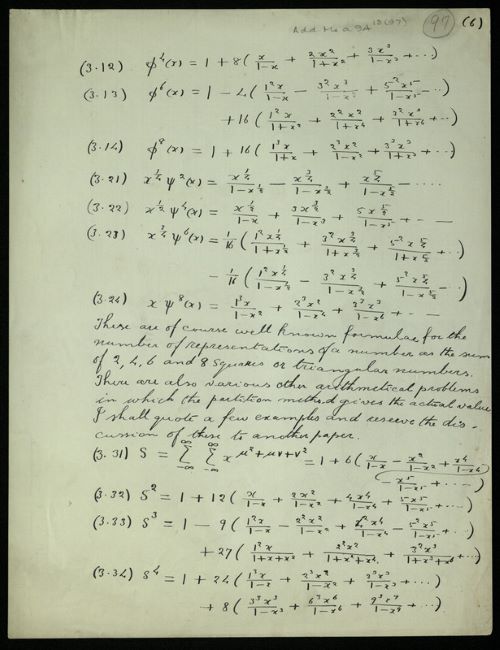 Add Ms a 94 15(97) 97 (6)
(3.12) φ⁴(x) = 1 + 8( x/(1-x) + 2x²/(1+x²) + 3x³/(1-x³) + ⋯ )
(3.13) φ⁶(x) = 1 - 4( 1²x/(1-x) - 3²x³/(1-x³) + 5²x⁵/(1-x⁵) - ⋯ )
+ 16( 1²x/(1+x²) + 2²x²/(1+x⁴) + 3²x³/(1+x⁶) + ⋯ )
(3.14) φ⁸(x) = 1 + 16( 1³x/(1+x) + 2³x²/(1-x²) + 3³x³/(1+x³) + ⋯ )
(3.21) x^¼ ψ²(x) = x^¼/(1-x^½) - x^¾/(1-x^(3/2)) + x^(5/4)/(1-x^(5/2)) - ⋯
(3.22) x^½ ψ⁴(x) = x^½/(1-x) + 3x^(3/2)/(1-x³) + 5x^(5/2)/(1-x⁵) + - -
(3.23) x^¾ ψ⁶(x) = 1/16( 1²x^¼/(1+x^½) + 3²x^¾/(1+x^(3/2)) + 5²x^(5/4)/(1+x^(5/2)) + ⋯ )
- 1/16( 1²x^¼/(1-x^½) - 3²x^¾/(1-x^(3/2)) + 5²x^(5/4)/(1-x^(5/2)) - ⋯ )
(3.24) x ψ⁸(x) = 1³x/(1-x²) + 2³x²/(1-x⁴) + 3³x³/(1-x⁶) + - -
These are of course well known formulae for the
number of representations of a number as the sum
of 2, 4, 6 and 8 squares or triangular numbers.
There are also various other arithmetical problems
in which the partition method gives the actual value
I shall quote a few examples and reserve the dis-
cussion of these to another paper.
(3.31) S = ∑_{-∞}^{∞} ∑_{-∞}^{∞} x^(μ²+μν+ν²) = 1 + 6( x/(1-x) - x²/(1-x²) + x⁴/(1-x⁴)
- x⁵/(1-x⁵) + ⋯ )
(3.32) S² = 1 + 12( x/(1-x) + 2x²/(1-x²) + 4x⁴/(1-x⁴) + 5x⁵/(1-x⁵) + ⋯ )
(3.33) S³ = 1 - 9( 1²x/(1-x) - 2²x²/(1-x²) + 4²x⁴/(1-x⁴) - 5²x⁵/(1-x⁵) + ⋯ )
+ 27( 1²x/(1+x+x²) + 2²x²/(1+x²+x⁴) + 3²x³/(1+x³+x⁶) + ⋯ )
(3.34) S⁴ = 1 + 24( 1³x/(1-x) + 2³x²/(1-x²) + 3³x³/(1-x³) + ⋯ )
+ 8( 3³x³/(1-x³) + 6³x⁶/(1-x⁶) + 9³x⁹/(1-x⁹) + ⋯ )